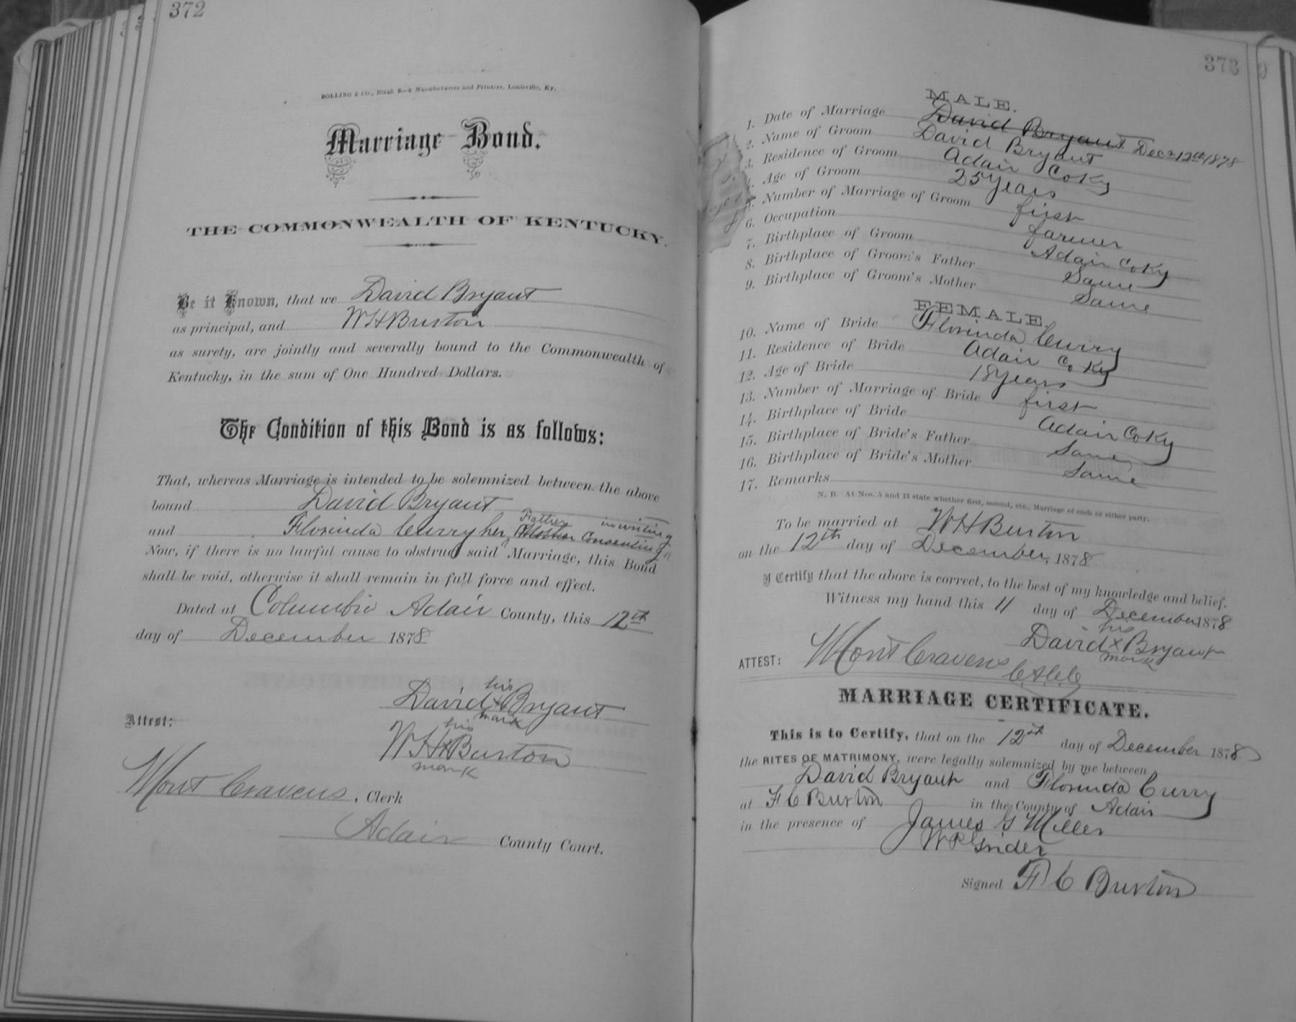 372
BOLLING & CO., Blank Book Manufacturers and Printers, Louisville, Ky.
Marriage Bond.
THE COMMONWEALTH OF KENTUCKY.
Be it Known, that we David Bryant
as principal, and W H Burton
as surety, are jointly and severally bound to the Commonwealth of
Kentucky, in the sum of One Hundred Dollars.
The Condition of this Bond is as follows:
That, whereas Marriage is intended to be solemnized between the above
bound David Bryant
Father in writing
and Florinda Curry her Mother Consenting
Now, if there is no lawful cause to obstruct said Marriage, this Bond
shall be void, otherwise it shall remain in full force and effect.
Dated at Columbia Adair County, this 12th
day of December 1878
his
David x Bryant
mark
Attest:
his
W H x Burton
mark
Mont Cravens, Clerk
Adair County Court.
373
MALE.
1. Date of Marriage David Bryant Dec 12th 1878
2. Name of Groom David Bryant
3. Residence of Groom Adair Co Ky
4. Age of Groom 25 years
5. Number of Marriage of Groom first
6. Occupation farmer
7. Birthplace of Groom Adair Co Ky
8. Birthplace of Groom's Father Same
9. Birthplace of Groom's Mother Same
FEMALE.
10. Name of Bride Florinda Curry
11. Residence of Bride Adair Co Ky
12. Age of Bride 18 years
13. Number of Marriage of Bride first
14. Birthplace of Bride Adair Co Ky
15. Birthplace of Bride's Father Same
16. Birthplace of Bride's Mother Same
17. Remarks
N. B. At Nos. 5 and 13 state whether first, second, etc., Marriage of each or either party.
To be married at W H Burton
on the 12th day of December, 1878
I Certify that the above is correct, to the best of my knowledge and belief.
Witness my hand this 11 day of December 1878
his
David x Bryant
mark
ATTEST: Mont Cravens
MARRIAGE CERTIFICATE.
This is to Certify, that on the 12th day of December 1878
the RITES OF MATRIMONY, were legally solemnized by me between
David Bryant and Florinda Curry
at F C Burton in the County of Adair
in the presence of James G Miller
W P Grider
Signed F C Burton